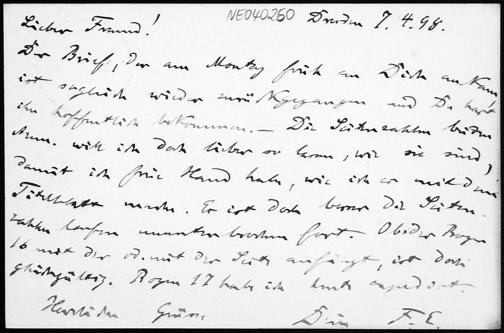 NE040260
Dresden 7.4.98.
Lieber Freund!
Der Brief, der am Montag früh an Dich ankam
ist sogleich wieder zurückgegangen und Du hast
ihn hoffentlich bekommen. – Die Seitenzahlen beider
will ich doch lieber so lassen, wie sie sind,
damit ich freie Hand habe, wie ich es mit dem
Titelblatt mache. Es ist doch besser die Seiten-
zahlen laufen ununterbrochen fort. Ob der Bogen
16 mit der od. mit der Seite anfängt, ist doch
gleichgültig. Bogen 17 habe ich heute expedirt.
Herzlichen Gruss
Dein F. E.